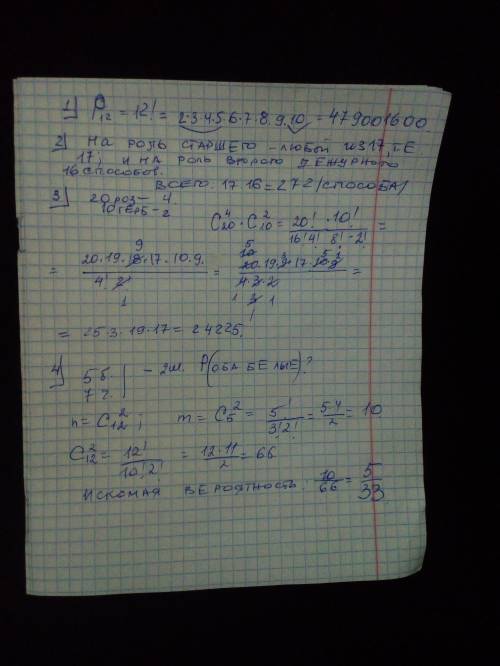 1) P₁₂ = 12! = 2·3·4·5·6·7·8·9·10 = 479001600
2) НА РОЛЬ СТАРШЕГО – ЛЮБОЙ ИЗ 17, Т.Е.
17, И НА РОЛЬ ВТОРОГО ДЕЖУРНОГО
16 СПОСОБОВ.
ВСЕГО: 17·16 = 272 /СПОСОБА/
3) 20 РОЗ – 4
10 ГЕРБ – 2
C⁴₂₀ · C²₁₀ = 20! · 10! / 16! 4! 8! · 2! =
= 20·19·18·17·10·9 / 4! 2! = 20·19·3·17·10·9 / 4·3·2 =
= 25·3·19·17 = 24225.
4) 5 б. – 2ш. P(ОБА БЕЛЫЕ)?
7 ч.
n = C²₁₂ ; m = C²₅ = 5! / 3! 2! = 5·4 / 2 = 10
C²₁₂ = 12! / 10! 2! = 12·11 / 2 = 66
ИСКОМАЯ ВЕРОЯТНОСТЬ: 10/66 = 5/33